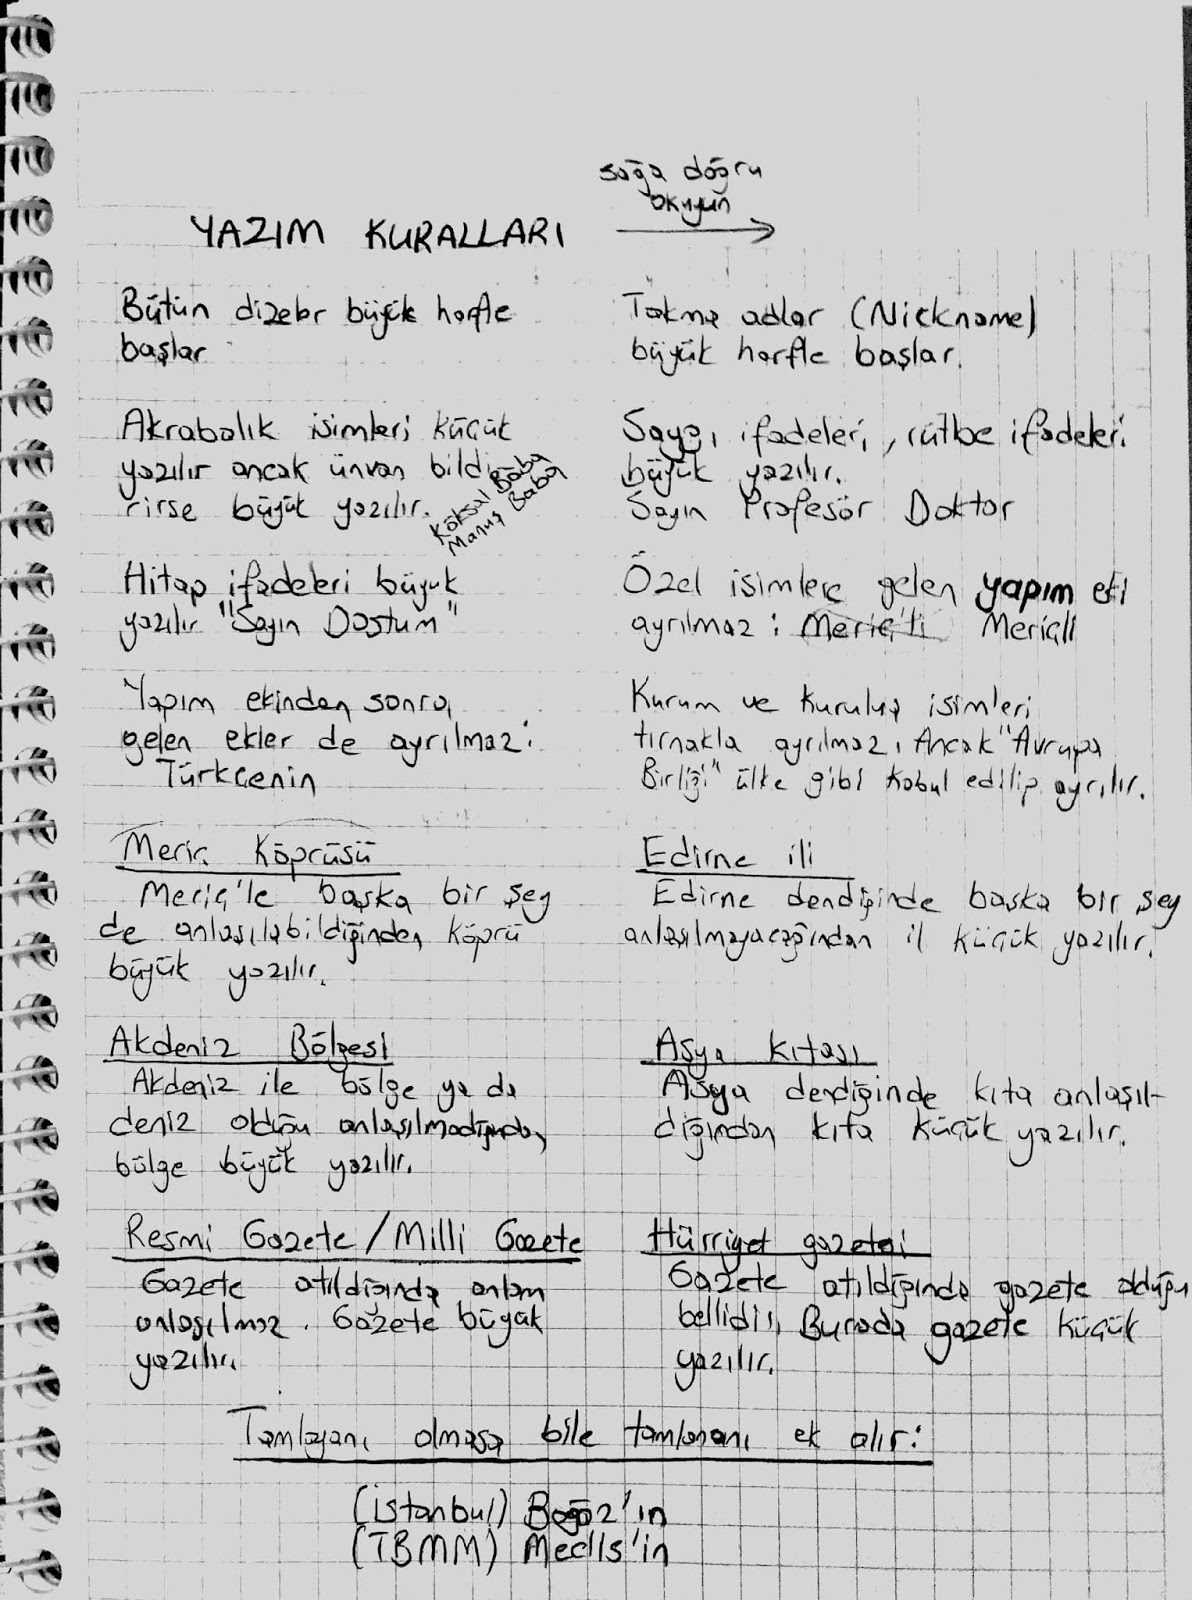 sağa doğru
okuyun
YAZIM KURALLARI
Bütün dizeler büyük harfle
başlar
Takma adlar (Nickname)
büyük harfle başlar.
Akrabalık isimleri küçük
yazılır ancak ünvan bildi
rirse büyük yazılır.
Köksal Baba
Manuş Baba
Saygı ifadeleri, rütbe ifadeleri
büyük yazılır.
Sayın Profesör Doktor
Hitap ifadeleri büyük
yazılır "Sayın Dostum"
Özel isimlere gelen yapım eki
ayrılmaz : Meriç'li Meriçli
Yapım ekinden sonra
gelen ekler de ayrılmaz :
Türkçenin
Kurum ve kuruluş isimleri
tırnakla ayrılmaz, Ancak "Avrupa
Birliği" ülke gibi kabul edilip ayrılır.
Meriç Köprüsü
Meriç'le başka bir şey
de anlaşılabildiğinden köprü
büyük yazılır.
Edirne ili
Edirne dendiğinde başka bir şey
anlaşılmayacağından il küçük yazılır.
Akdeniz Bölgesi
Akdeniz ile bölge ya da
deniz olduğu anlaşılmadığından
bölge büyük yazılır.
Asya kıtası
Asya dendiğinde kıta anlaşıl-
dığından kıta küçük yazılır.
Resmi Gazete / Milli Gazete
Gazete atıldığında anlam
anlaşılmaz. Gazete büyük
yazılır.
Hürriyet gazetesi
Gazete atıldığında gazete olduğu
bellidir, Burada gazete küçük
yazılır.
Tamlayanı olmasa bile tamlananı ek alır :
(İstanbul) Boğaz'ın
(TBMM) Meclis'in